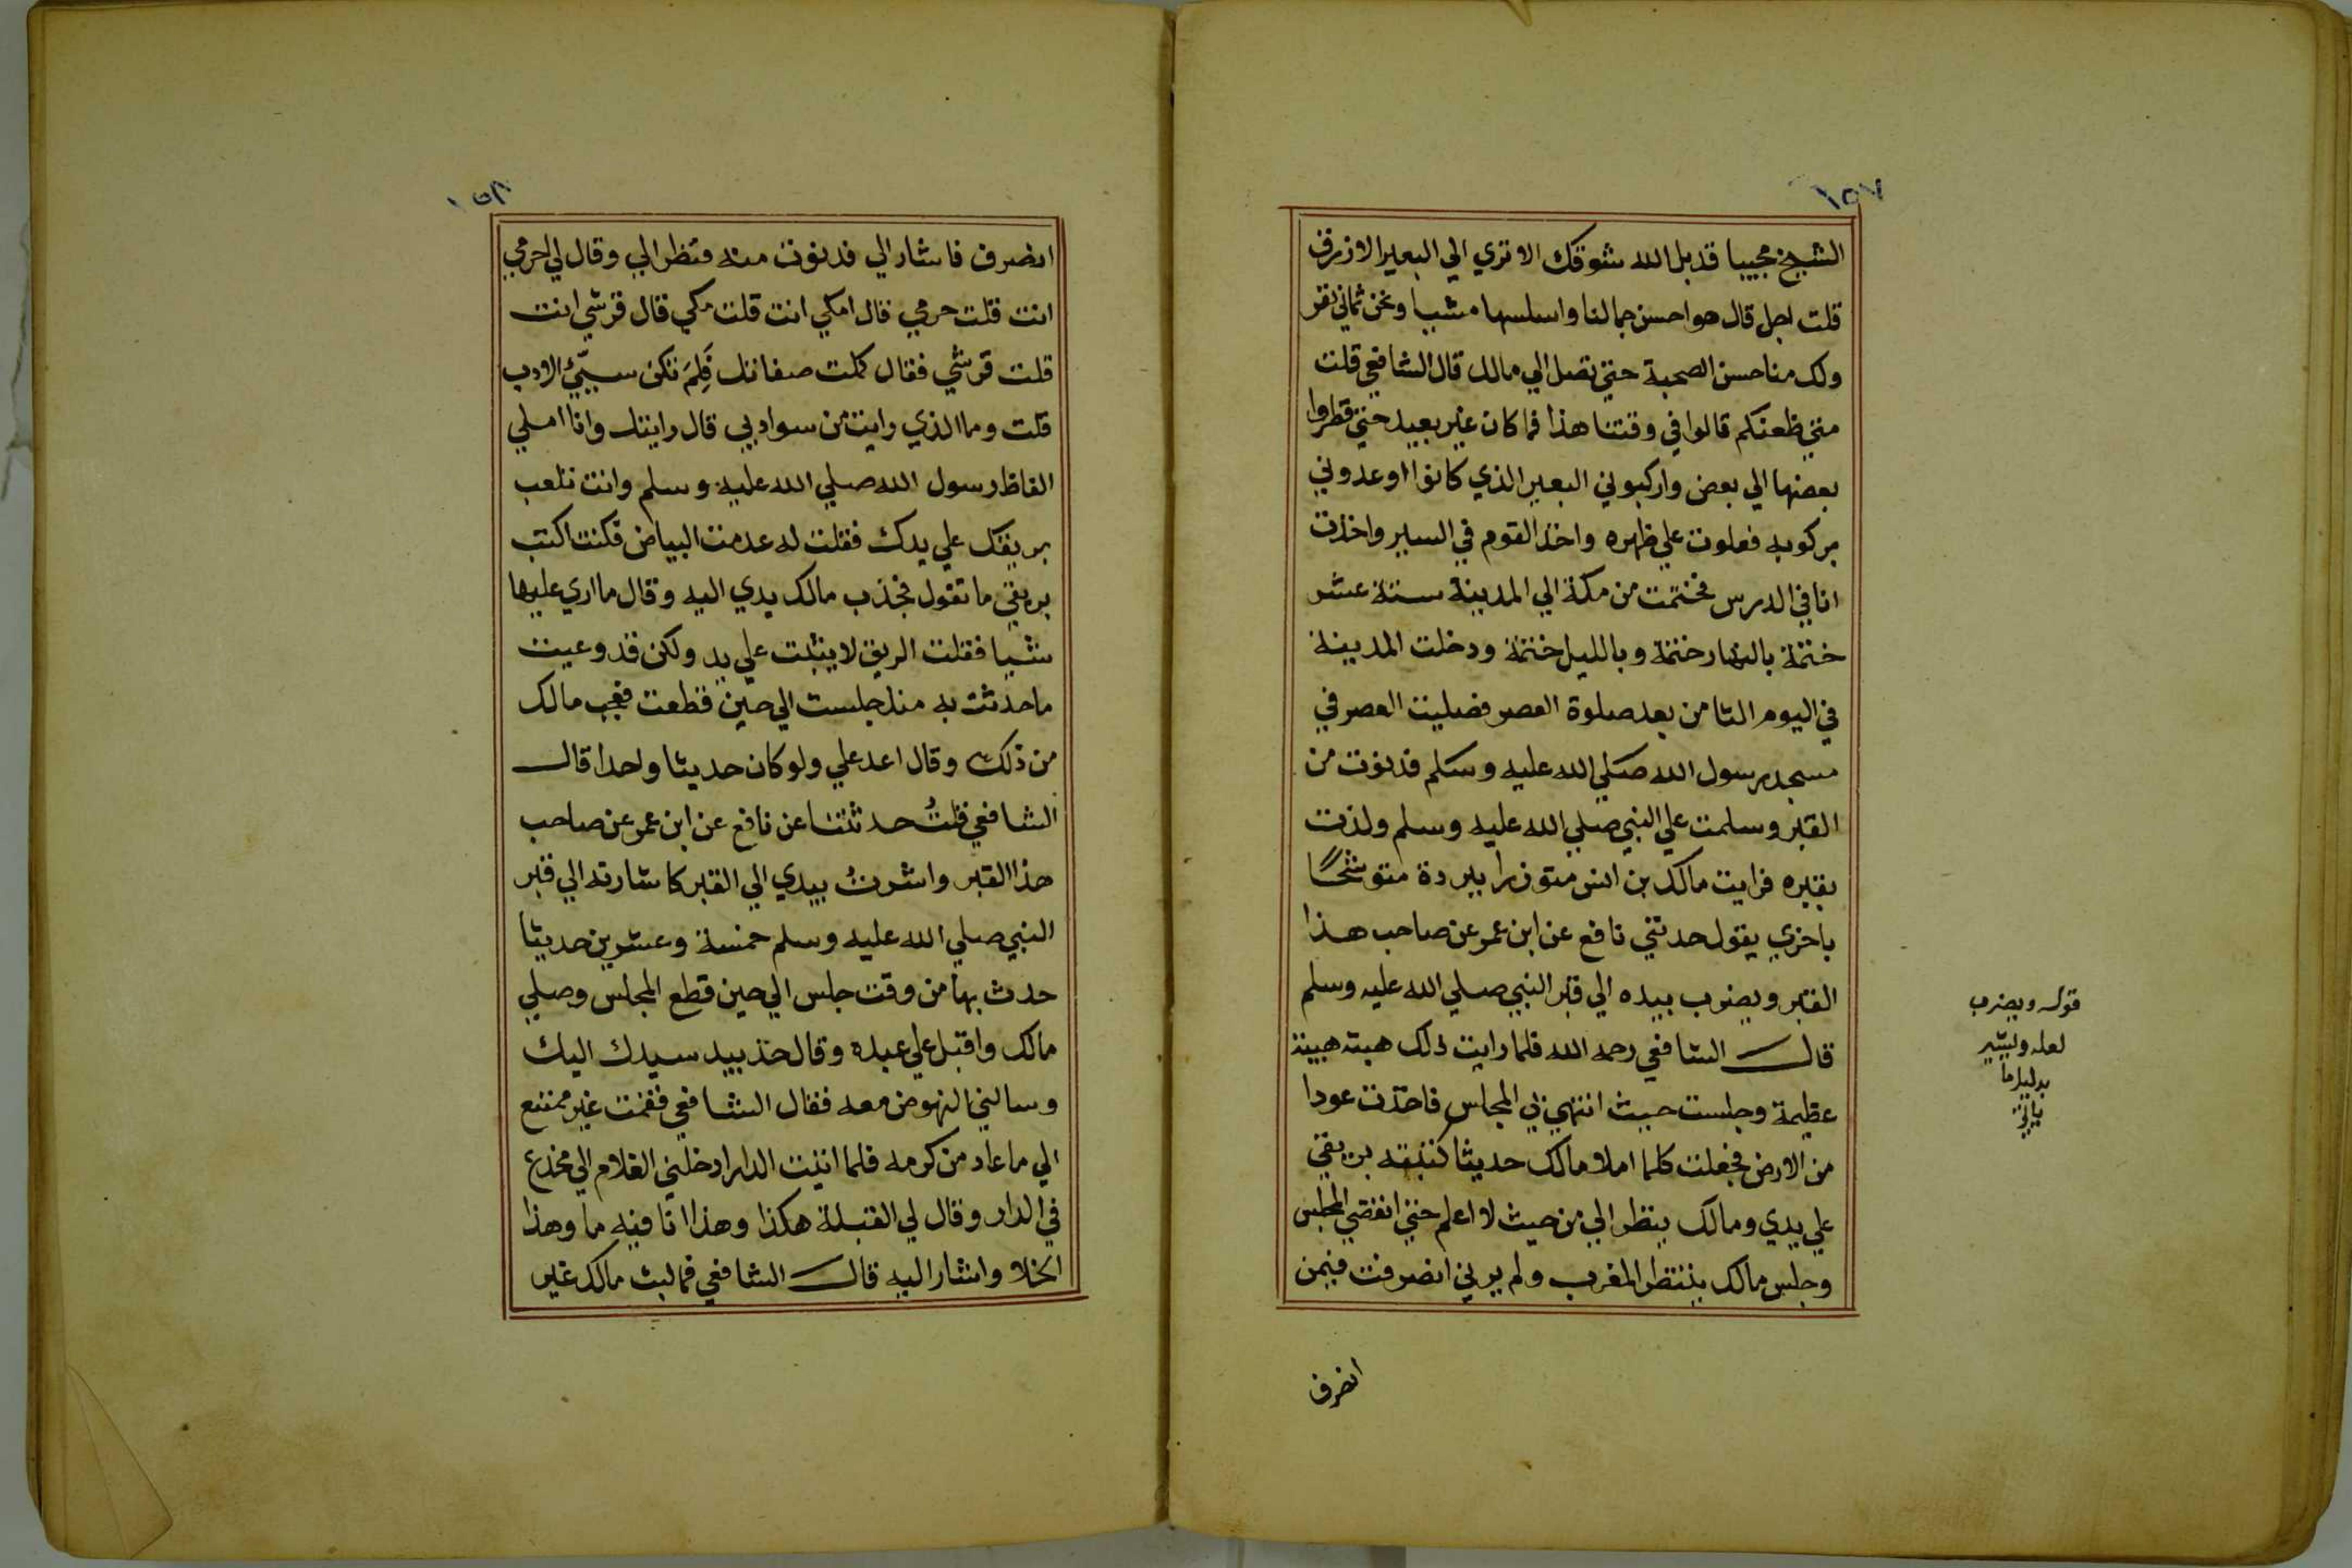 ١٥٧
الشيخ مجيبا قد بل الله شوقك الا تري الي البعير الازرق
قلت اجل قال هو احسن جمالنا واسلسها مشيا ونحن ثماني نفر
ولك منا حسن الصحبة حتي تصل الي مالك قال الشافعي قلت
متي ظعنكم قالوا في وقتنا هذا فما كان غير بعيد حتي قطروا
بعضها الي بعض واركبوني البعير الذي كانوا اوعدوني
بركوبه فعلوت علي ظهره واخذ القوم في السير واخذت
انا في الدرس فختمت من مكة الي المدينة ستة عشر
ختمة بالنهار ختمة وبالليل ختمة ودخلت المدينة
في اليوم الثامن بعد صلوة العصر فصليت العصر في
مسجد رسول الله صلي الله عليه وسلم فدنوت من
القبر وسلمت علي النبي صلي الله عليه وسلم ولذت
بقبره فرايت مالك بن انس متوزرا ببردة متوشحًا
باخري يقول حدثني نافع عن ابن عمر عن صاحب هذا
القبر ويضرب بيده الي قبر النبي صلي الله عليه وسلم
قال الشافعي رحمه الله فلما رايت ذلك هبته هيبة
عظيمة وجلست حيث انتهي بي المجلس فاخذت عودا
من الارض فجعلت كلما املا مالك حديثا كتبته بريقي
علي يدي ومالك ينظر الي من حيث لا اعلم حتي انقضي المجلس
وجلس مالك ينتظر المغرب ولم يرني انصرفت فيمن
انصرف
قوله ويضرب
لعله ويشير
بدليل ما
ياتي
١٥٨
انصرف فاشار الي فدنوت منه فنظر الي وقال لي احرمي
انت قلت حرمي قال امكي انت قلت مكي قال قرشي انت
قلت قرشي فقال كملت صفاتك فَلِمَ تكن سيّئ الادب
قلت وما الذي رايت من سواد بي قال رايتك وانا املي
الفاظ رسول الله صلي الله عليه وسلم وانت تلعب
بريقك علي يدك فقلت له عدمت البياض فكنت اكتب
بريقي ما تقول فجذب مالك يدي اليه وقال ما اري عليها
شيا فقلت الريق لا يثبت علي يد ولكن قد وعيت
ما حدثت به منذ جلست الي حين قطعت فعجب مالك
من ذلك وقال اعد علي ولو كان حديثا واحدا قال
الشافعي قلتُ حدثتنا عن نافع عن ابن عمر عن صاحب
هذا القبر واشرتُ بيدي الي القبر كاشارته الي قبر
النبي صلي الله عليه وسلم خمسة وعشرين حديثا
حدث بها من وقت جلس الي حين قطع المجلس وصلي
مالك واقبل علي عبده وقال خذ بيد سيدك اليك
وسالني النهوض معه فقال الشافعي فقمت غير ممتنع
الي ما عاد من كرمه فلما اتيت الدار ادخلني الغلام الي مخدع
في الدار وقال لي القبلة هكذا وهذا انا فيه ما وهذا
الخلا واشار اليه قال الشافعي فما لبث مالك غير